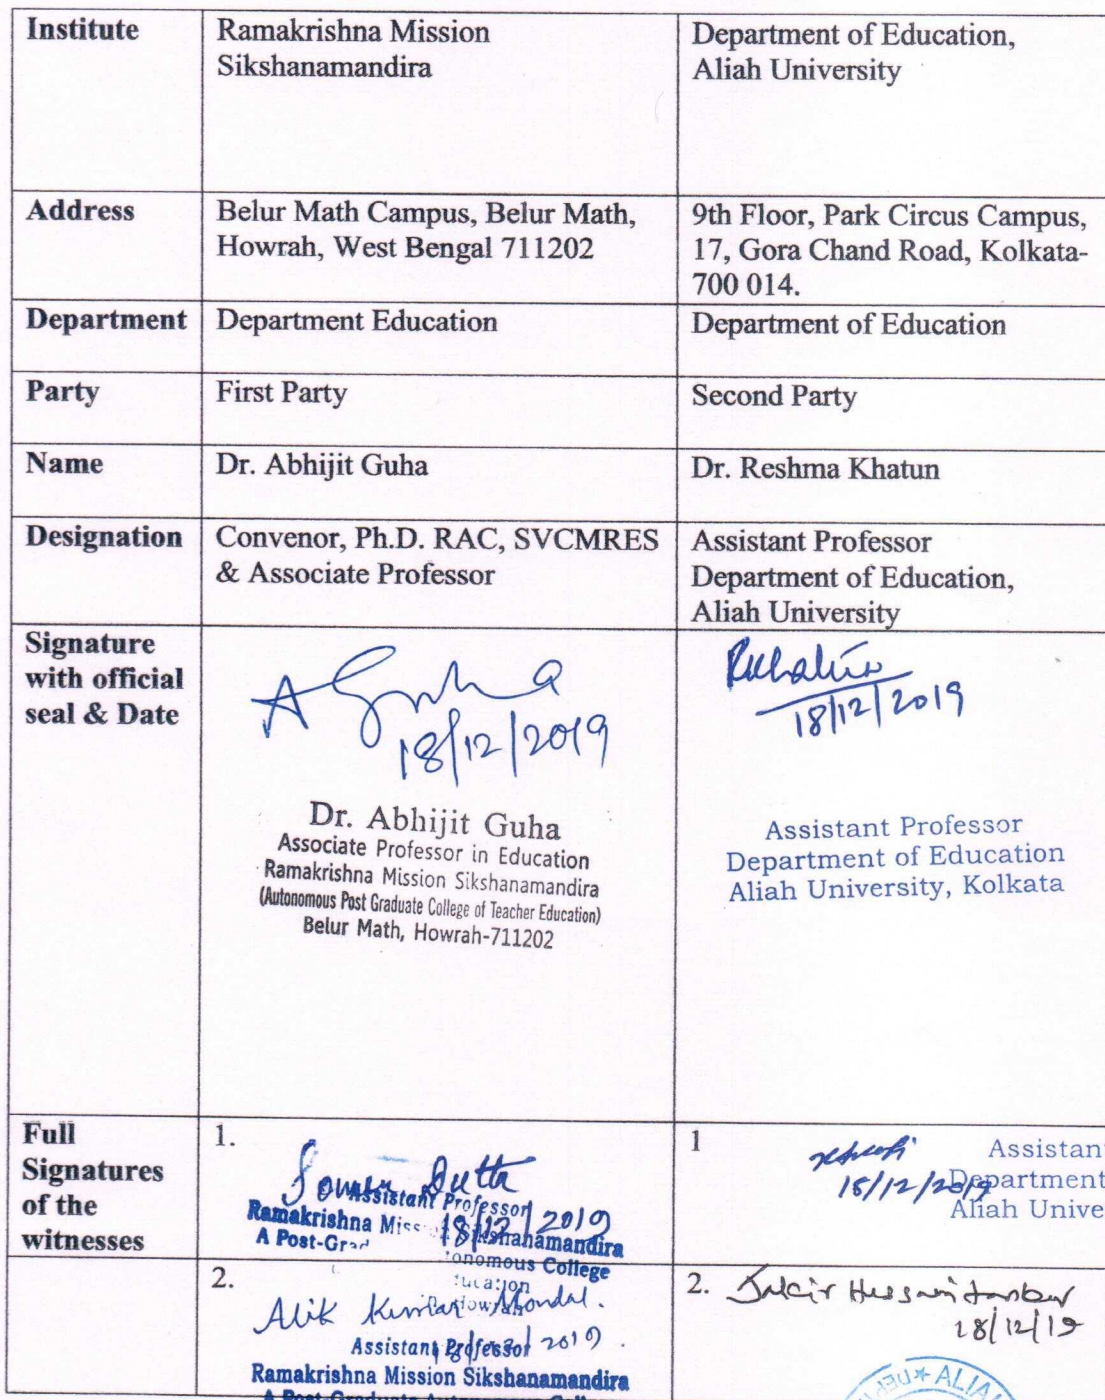 Institute
Ramakrishna Mission
Sikshanamandira
Department of Education,
Aliah University
Address
Belur Math Campus, Belur Math,
Howrah, West Bengal 711202
9th Floor, Park Circus Campus,
17, Gora Chand Road, Kolkata-
700 014.
Department
Department Education
Department of Education
Party
First Party
Second Party
Name
Dr. Abhijit Guha
Dr. Reshma Khatun
Designation
Convenor, Ph.D. RAC, SVCMRES
& Associate Professor
Assistant Professor
Department of Education,
Aliah University
Signature
with official
seal & Date
A Guha
18/12/2019
Dr. Abhijit Guha
Associate Professor in Education
Ramakrishna Mission Sikshanamandira
(Autonomous Post Graduate College of Teacher Education)
Belur Math, Howrah-711202
RKhatun
18/12/2019
Assistant Professor
Department of Education
Aliah University, Kolkata
Full
Signatures
of the
witnesses
1.
Dutta
Assistant Professor
18/12/2019
Ramakrishna Mission Sikshanamandira
A Post-Grad
onomous College
ucation
1
18/12/2019
Assistant
Department
Aliah Unive
2.
Alik Kumar Mondal.
2019
Assistant Professor
Ramakrishna Mission Sikshanamandira
A Post-Graduate Autonomous College
2.
18/12/19
ALIA